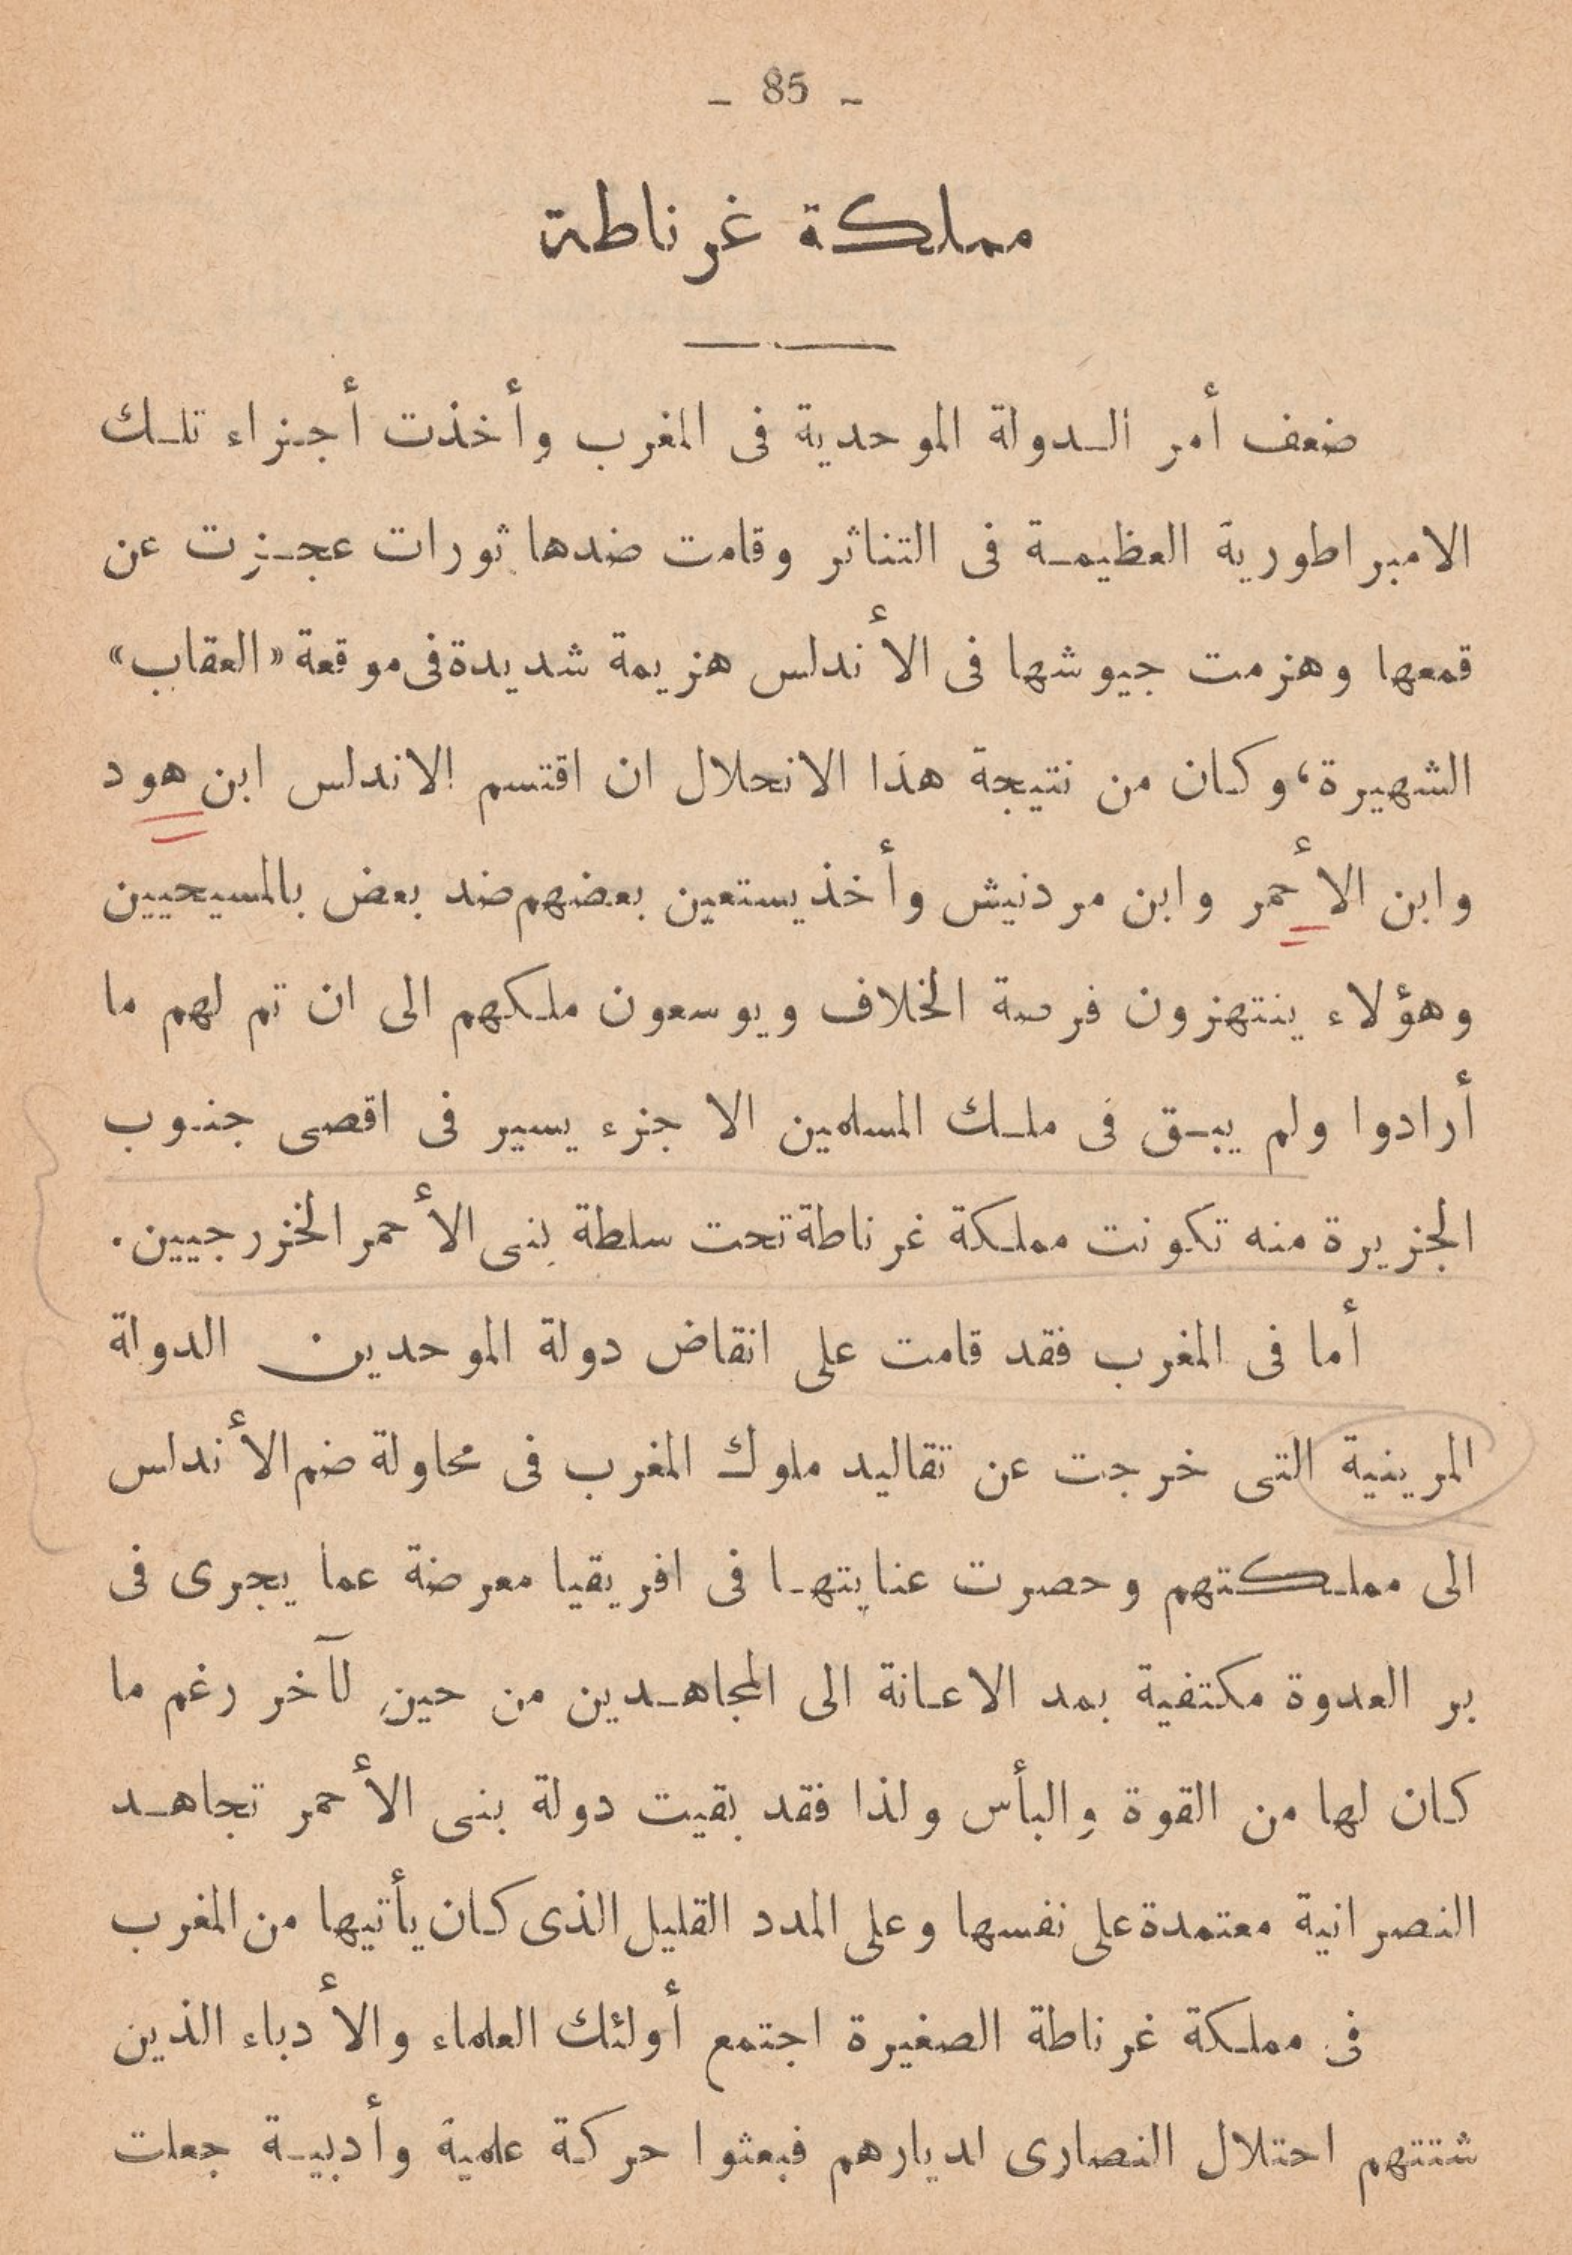 - 85 -
مملكة غرناطة
ضعف أمر الدولة الموحدية فى المغرب وأخذت أجزاء تلك
الامبراطورية العظيمة فى التناثر وقامت ضدها ثورات عجزت عن
قمعها وهزمت جيوشها فى الأندلس هزيمة شديدة فى موقعة «العقاب»
الشهيرة، وكان من نتيجة هذا الانحلال ان اقتسم الاندلس ابن هود
وابن الأحمر وابن مردنيش وأخذ يستعين بعضهم ضد بعض بالمسيحيين
وهؤلاء ينتهزون فرصة الخلاف ويوسعون ملكهم الى ان تم لهم ما
أرادوا ولم يبق فى ملك المسلمين الا جزء يسير فى اقصى جنوب
الجزيرة منه تكونت مملكة غرناطة تحت سلطة بنى الأحمر الخزرجيين.
أما فى المغرب فقد قامت على انقاض دولة الموحدين الدولة
المرينية التى خرجت عن تقاليد ملوك المغرب فى محاولة ضم الأندلس
الى مملكتهم وحصرت عنايتها فى افريقيا معرضة عما يجرى فى
بر العدوة مكتفية بمد الاعانة الى المجاهدين من حين لآخر رغم ما
كان لها من القوة والبأس ولذا فقد بقيت دولة بنى الأحمر تجاهد
النصرانية معتمدة على نفسها وعلى المدد القليل الذى كان يأتيها من المغرب
فى مملكة غرناطة الصغيرة اجتمع أولئك العلماء والأدباء الذين
شتتهم احتلال النصارى لديارهم فبعثوا حركة علمية وأدبية جعلت